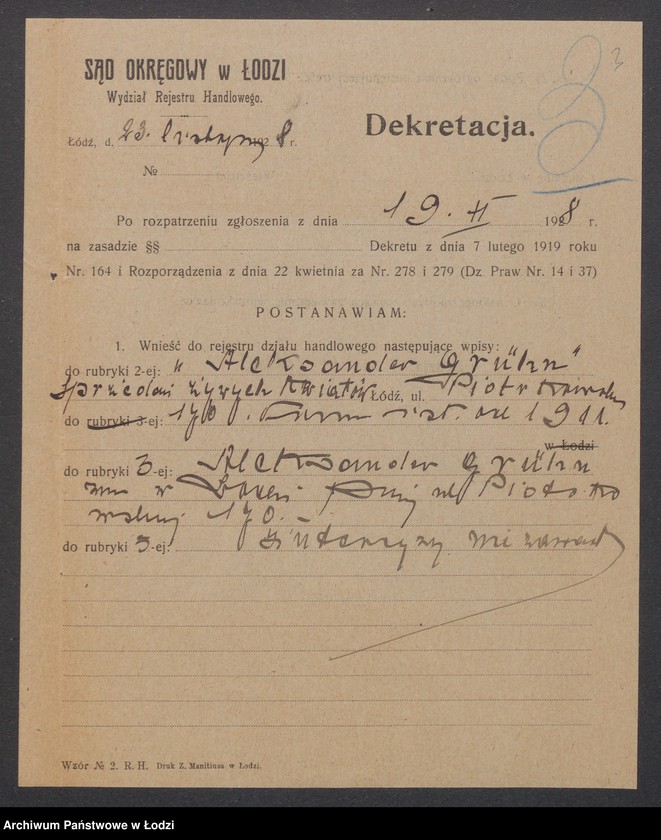 3
SĄD OKRĘGOWY w ŁODZI
Wydział Rejestru Handlowego.
Dekretacja.
Łódź, d. 23. listopad 1928 r.
№
Po rozpatrzeniu zgłoszenia z dnia 19. II 1928 r.
na zasadzie §§ Dekretu z dnia 7 lutego 1919 roku
Nr. 164 i Rozporządzenia z dnia 22 kwietnia za Nr. 278 i 279 (Dz. Praw Nr. 14 i 37)
POSTANAWIAM:
1. Wnieść do rejestru działu handlowego następujące wpisy:
do rubryki 2-ej: "Aleksander Grühn"
Sprzedaż żywych kwiatów Łódź, ul. Piotrkowska
do rubryki 3-ej: 170. Firma ist. od 1911.
w Łodzi
do rubryki 3-ej: Aleksander Grühn
zam w Łodzi przy ul Piotrko
wskiej 170. –
do rubryki 5-ej: Intercyzy nie zawarł
Wzór № 2. R. H. Druk Z. Manitiusa w Łodzi.
Archiwum Państwowe w Łodzi